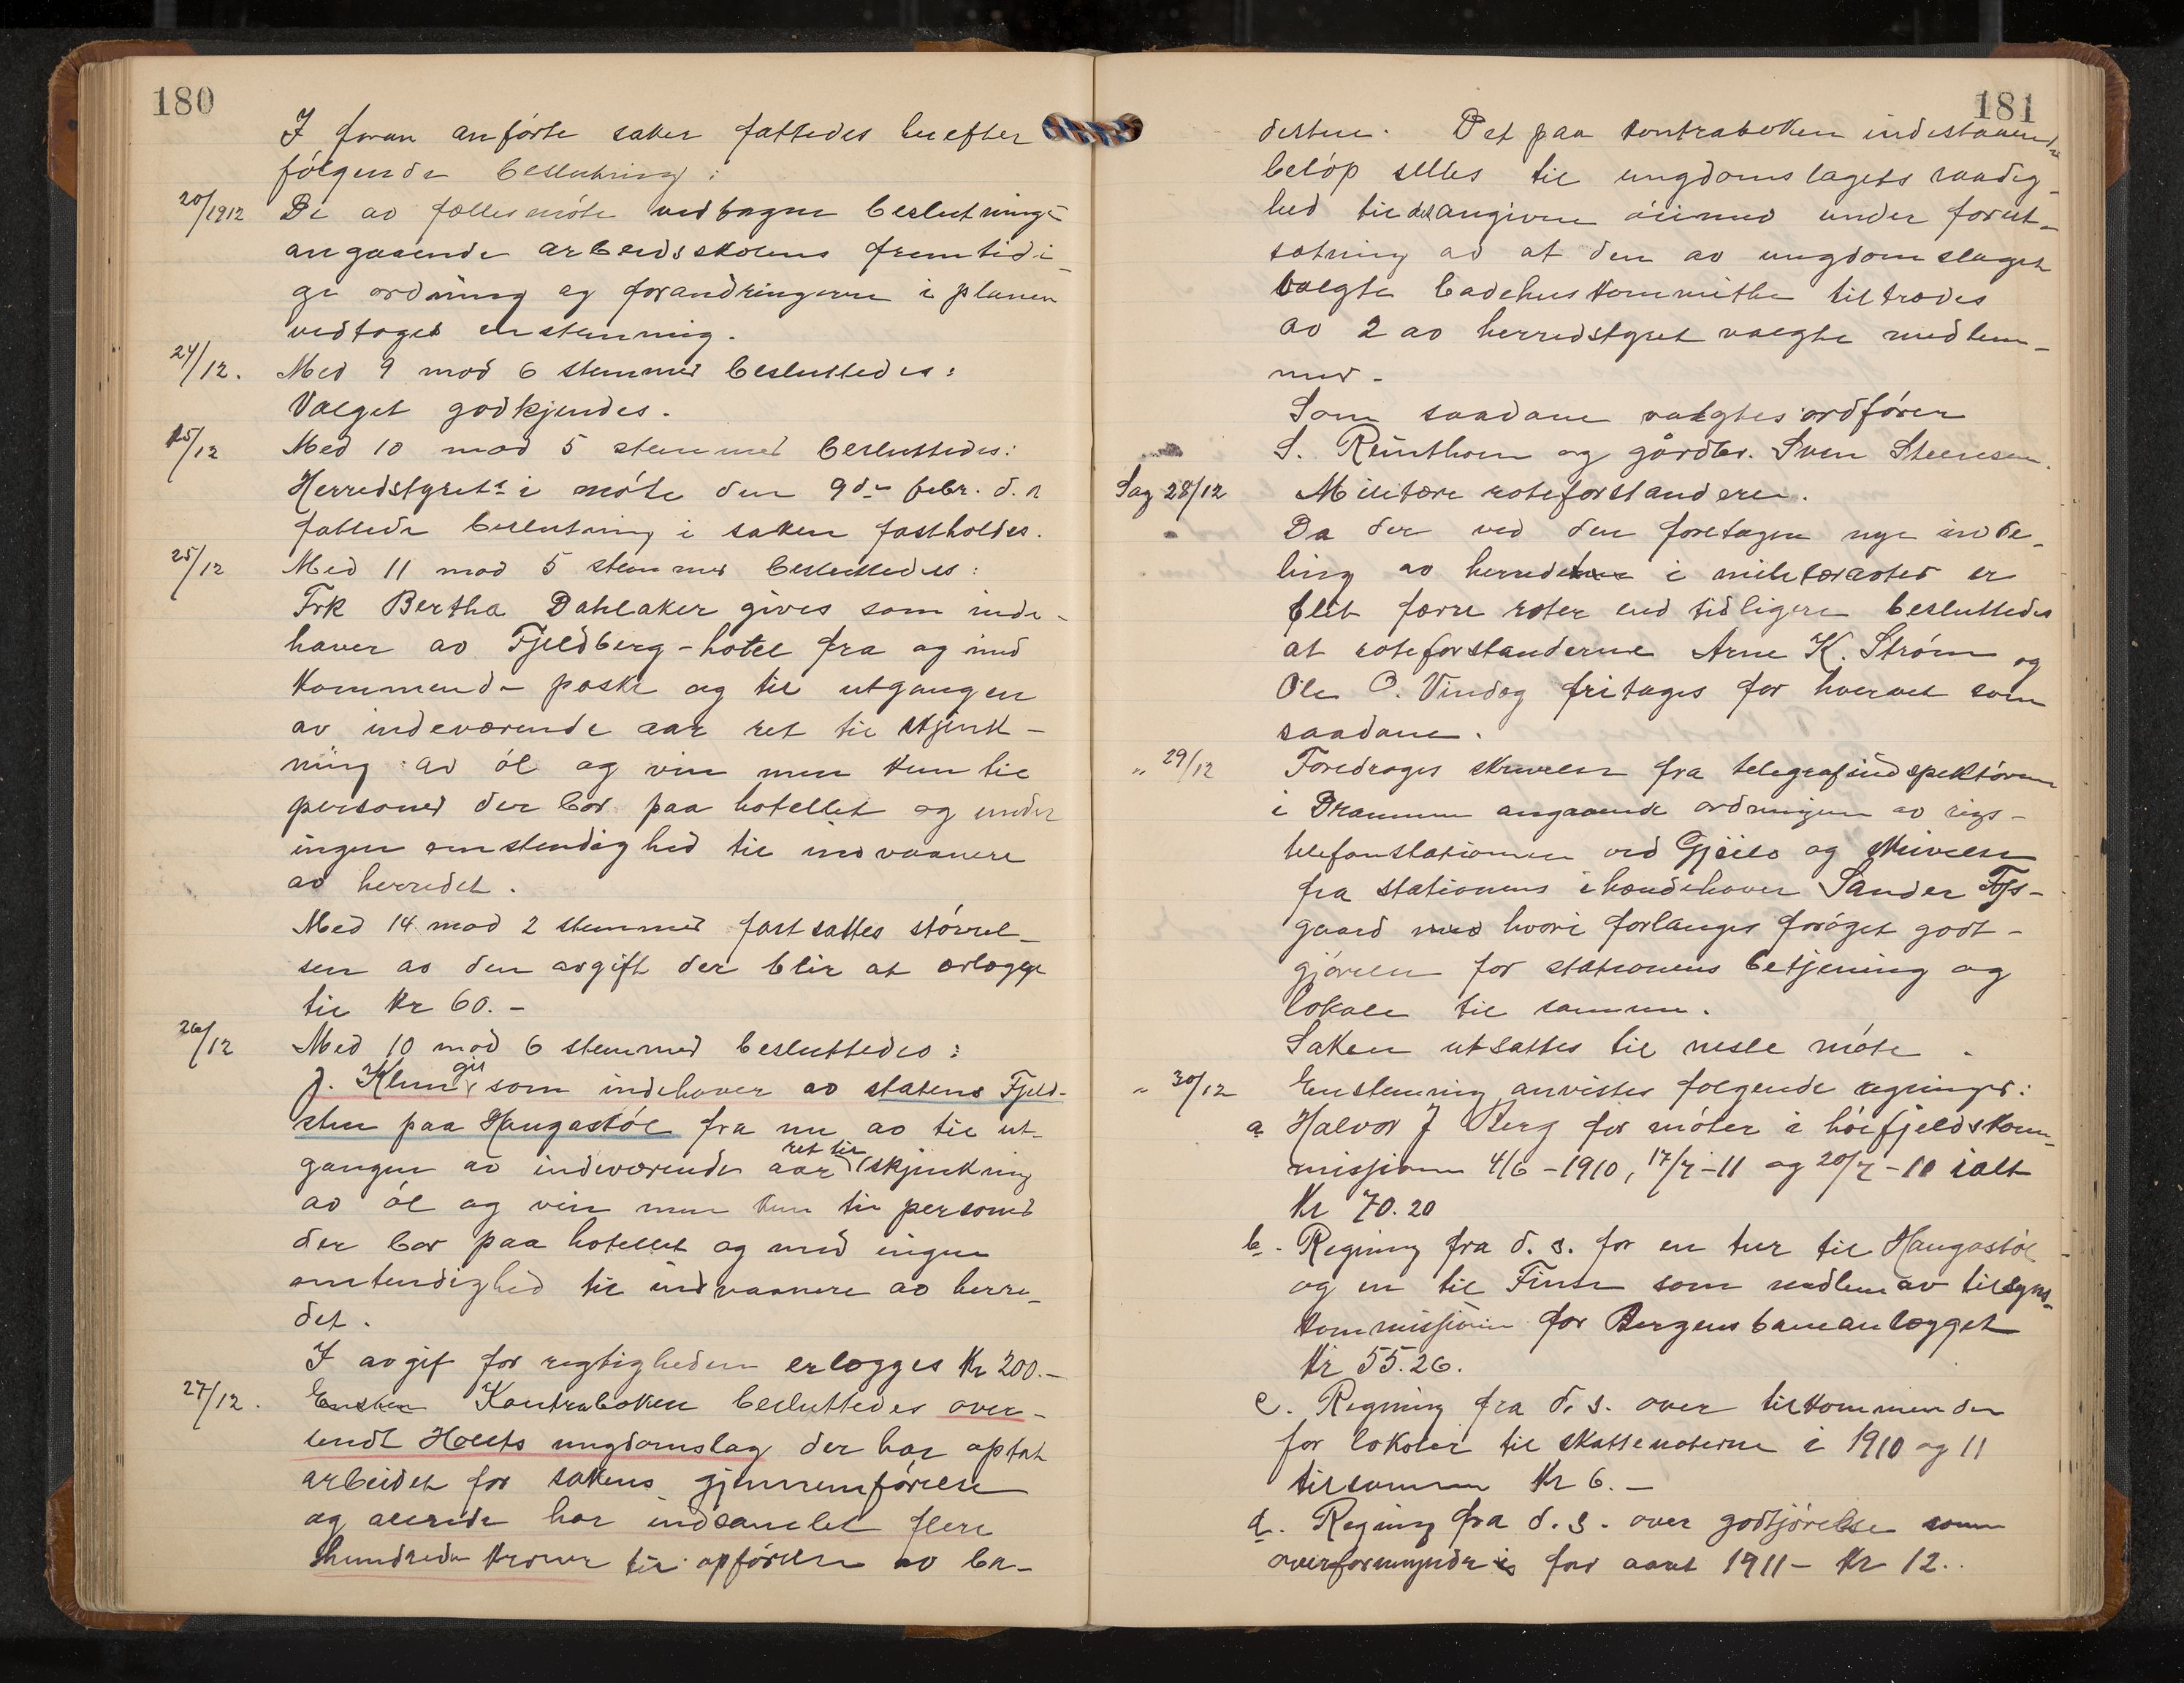 180
I foran anførte saker fattedes herefter
følgende beslutning:
20/1912 De av fællesmøte vedtagne beslutninge
angaaende arbeidsskolens fremtidi-
ge ordning og forandringerne i planen
vedtoges enstemmig.
24/12. Med 9 mod 6 stemmer besluttedes:
Valget godkjendes.
15/12 Med 10 mod 5 stemmer besluttedes:
Herredstyrets i møte den 9de febr. d. a
fattede beslutning i saken fastholdes.
25/12 Med 11 mod 5 stemmer besluttedes:
Frk Bertha Dahlaker gives som inde-
haver av Fjeldberg-hotel fra og med
kommende paske og til utgangen
av indeværende aar ret til skjenk-
ning av øl og vin men kun til
personer der bor paa hotellet og under
ingen omstendighed til indvaanere
av herredet.
Med 14 mod 2 stemmer fastsattes størrel-
sen av den avgift der blir at erlægge
til kr 60.-
26/12 Med 10 mod 6 stemmer besluttedes:
J. Klem gis som indehaver av statens Fjeld-
stue paa Haugastøl fra nu av til ut-
gangen av indeværende aar ret til skjenkning
av øl og vin men kun til personer
der bor paa hotellet og med ingen
omstendighed til indvaanere av herre-
det.
I avgift for regtigheden erlægges kr 200.-
27/12. Enstem Kontraboken besluttedes over-
sendt Hols ungdomslag der har optat
arbeidet for sakens gjennemførelse
og allerede har indsamlet flere
hundrede kroner til opførelse av ba-
181
destue. Det paa kontraboken indestaaende
beløp stilles til ungdomslagets raadig-
hed til det angivne øiemed under forut-
sætning av at den av ungdomslaget
valgte badehuskommitte tiltrædes
av 2 av herredstyret valgte medlem-
mer.
Som saadane valgtes ordfører
S. Reinthon og gårdbr. Sven Steensen.
Sag 28/12 Militære roteforstandere.
Da der ved den foretagen nye indde-
ling av herredene i militærroter er
blit færre roter end tidligere besluttedes
at roteforstanderne Arne K. Strøm og
Ole O. Vindeg fritages for hvervet som
saadane.
" 29/12 Foredroges skrivelse fra telegrafindspektøren
i Drammen angaaende ordningen av rigs-
telefonstationen ved Gjeilo og skrivelse
fra stationens ihændehaver Sander Tufs-
gaard med hvori forlanges forøget godt-
gjørelse for stationens betjening og
lokale til samme.
Saken utsattes til neste møte.
" 30/12 Enstemmig anvistes følgende regninger:
a Halvor J Berg for møter i høifjeldskom-
missionen 4/6-1910, 17/7-11 og 20/7-10 ialt
Kr 70.20
b. Regning fra d. s. for en tur til Haugastøl
og en til Finse som medlem av tilsyns-
kommissionen for Bergensbaneanlægget
Kr 55.26.
c. Regning fra d. s. over tilkommende
for lokaler til skattemøterne i 1910 og 11
tilsammen Kr 6.-
d. Regning fra d. s. over godtjørelse som
overformynder for aaret 1911- Kr 12.